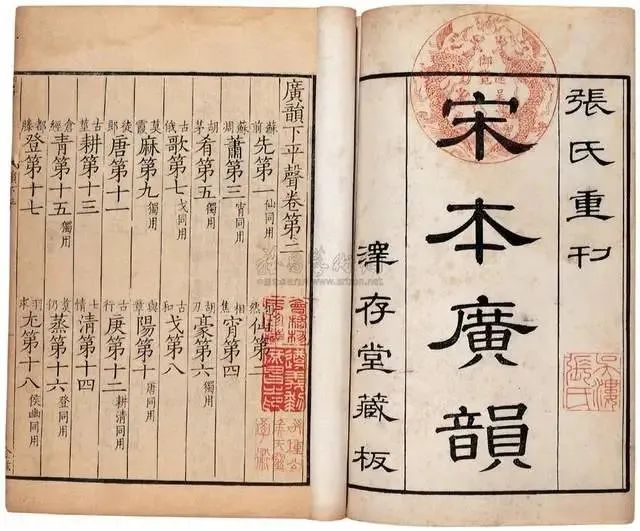 張氏重刊
宋本廣韻
澤存堂藏板
廣韻下平聲卷第二
蘇前先第一仙同用 然仙第二
蘇凋蕭第三宵同用 相焦宵第四
胡茅肴第五獨用 胡豪第六獨用
古俄歌第七戈同用 古和戈第八
莫霞麻第九獨用 與章陽第十唐同用
徒郎唐第十一 古行庚第十二耕清同用
古莖耕第十三 七情清第十四
倉經青第十五獨用 仍蒸第十六登同用
都滕登第十七 羽求尤第十八侯幽同用
御覽
張氏
www.artron.net